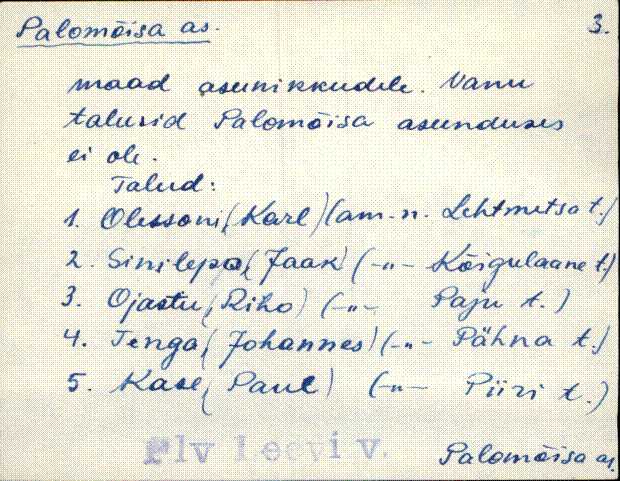 Palomõisa as. 3.
maad asunikkudele. Vanu
talusid Palomõisa asunduses
ei ole.
Talud:
1. Olessoni, (Karl) (am. n. Lehtmetsa t.)
2. Sinilepa, (Jaak) (-"- Kõigulaane t.)
3. Ojastu, (Riho) (-"- Paju t.)
4. Tenga, (Johannes) (-"- Pähna t.)
5. Kase, (Paul) (-"- Piiri t.)
Plv Leevi v.
Palomõisa as.